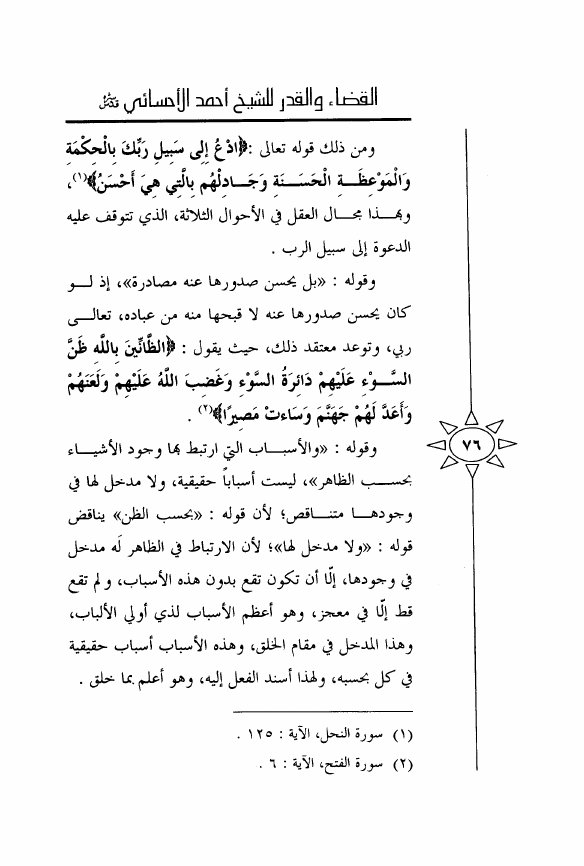 القضاء والقدر للشيخ أحمد الأحسائي
ومن ذلك قوله تعالى :﴿ادْعُ إِلى سَبِيلِ رَبِّكَ بِالْحِكْمَةِ
وَالْمَوْعِظَةِ الْحَسَنَةِ وَجَادِلْهُم بِالَّتِي هِيَ أَحْسَنُ﴾(١)،
وبهذا مجال العقل في الأحوال الثلاثة، الذي تتوقف عليه
الدعوة إلى سبيل الرب .
وقوله : «بل يحسن صدورها عنه مصادرة»، إذ لو
كان يحسن صدورها عنه لا قبحها منه من عباده، تعالى
ربي، وتوعد معتقد ذلك، حيث يقول : ﴿الظَّانِّينَ بِاللَّهِ ظَنَّ
السَّوْءِ عَلَيْهِمْ دَائِرَةُ السَّوْءِ وَغَضِبَ اللَّهُ عَلَيْهِمْ وَلَعَنَهُمْ
وَأَعَدَّ لَهُمْ جَهَنَّمَ وَسَاءتْ مَصِيرًا﴾(٢) .
وقوله : «والأسباب التي ارتبط بها وجود الأشياء
بحسب الظاهر»، ليست أسباباً حقيقية، ولا مدخل لها في
وجودها متناقص؛ لأن قوله : «بحسب الظن» يناقض
قوله : «ولا مدخل لها»؛ لأن الارتباط في الظاهر لَه مدخل
في وجودها، إلّا أن تكون تقع بدون هذه الأسباب، ولم تقع
قط إلّا في معجز، وهو أعظم الأسباب لذي أولي الألباب،
وهذا المدخل في مقام الخلق، وهذه الأسباب أسباب حقيقية
في كل بحسبه، ولهذا أسند الفعل إليه، وهو أعلم بما خلق .
٧٦
(١) سورة النحل، الآية : ١٢٥ .
(٢) سورة الفتح، الآية : ٦ .